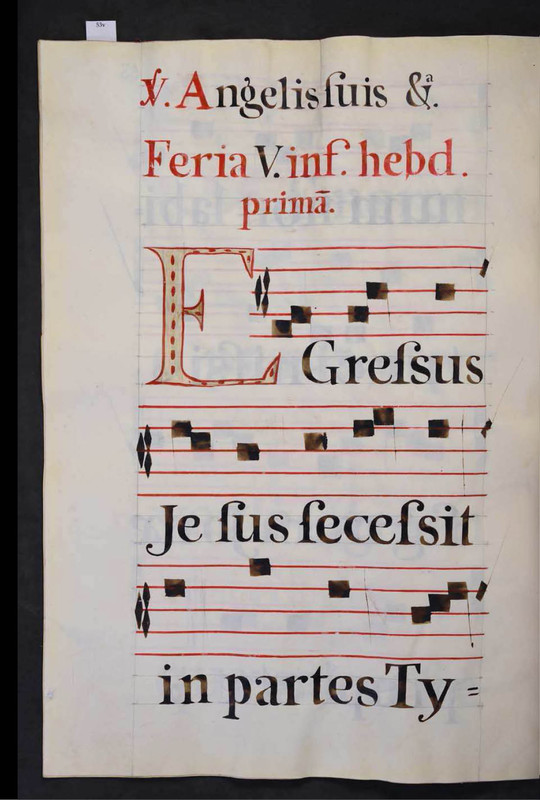 55v
℣. Angelis ſuis &ª.
Feria V. inf. hebd.
primā.
EGreſsus
Je ſus ſeceſsit
in partes Ty=